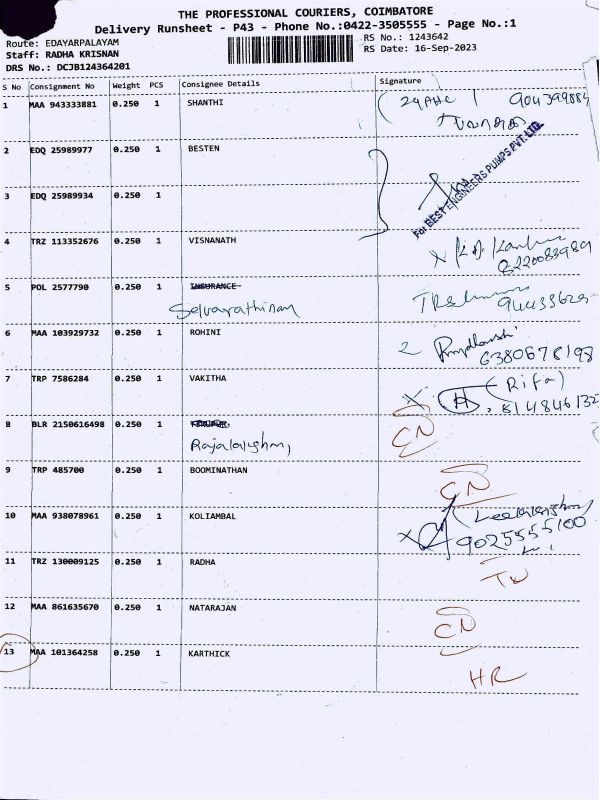 THE PROFESSIONAL COURIERS, COIMBATORE
Delivery Runsheet - P43 - Phone No.:0422-3505555 - Page No.:1
Route: EDAYARPALAYAM
RS No.: 1243642
Staff: RADHA KRISNAN
RS Date: 16-Sep-2023
DRS No.: DCJB124364201
S No Consignment No Weight PCS Consignee Details Signature
1 MAA 943333881 0.250 1 SHANTHI
2 EDQ 25989977 0.250 1 BESTEN
For BEST ENGINEERS PUMPS PVT. LTD.
3 EDQ 25989934 0.250 1
4 TRZ 113352676 0.250 1 VISNANATH
8220083989
5 POL 2577790 0.250 1 INSURANCE
Selvarathinam
6 MAA 103929732 0.250 1 ROHINI
6380678198
7 TRP 7586284 0.250 1 VAKITHA (Rifa)
8148461325
8 BLR 2150616498 0.250 1 CN
9 TRP 485700 0.250 1 BOOMINATHAN CN
10 MAA 938078961 0.250 1 KOLIAMBAL
9025555100
11 TRZ 130009125 0.250 1 RADHA
12 MAA 861635670 0.250 1 NATARAJAN CN
13 MAA 101364258 0.250 1 KARTHICK HR